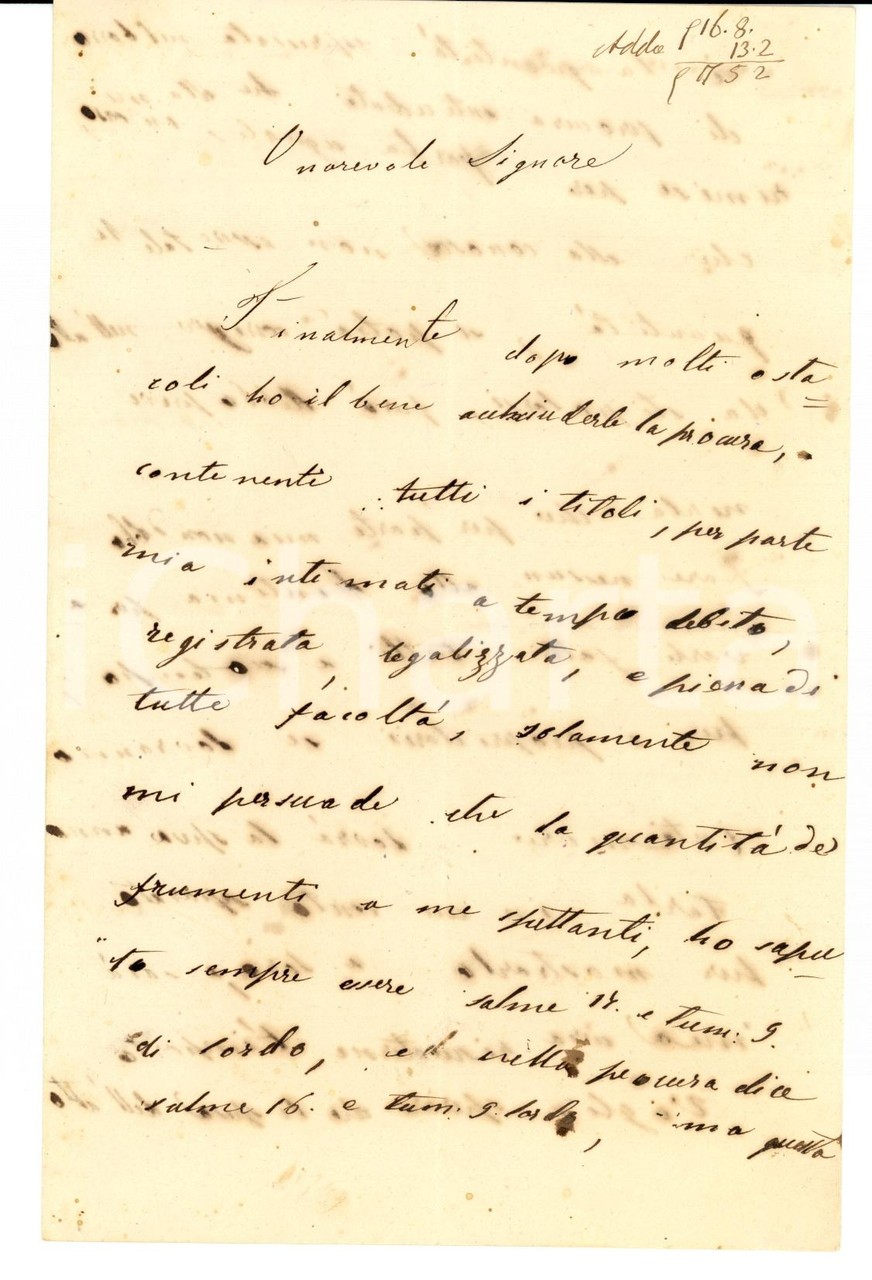 Adde 16. 8.
13. 2
52
Onorevole Signore
Finalmente dopo molti osta=
coli ho il bene acchiuderle la procura,
contenente tutti i titoli, per parte
mia intimati a tempo debito,
registrata, legalizzata, e piena di
tutte facoltá, solamente non
mi persuade che la quantitá de'
frumenti a me spettanti, ho sapu
to sempre essere salme 14. e tum: 9.
di lordo, ed nella procura dice
salme 16. e tum. 9. lordo, ma questa
iCharta